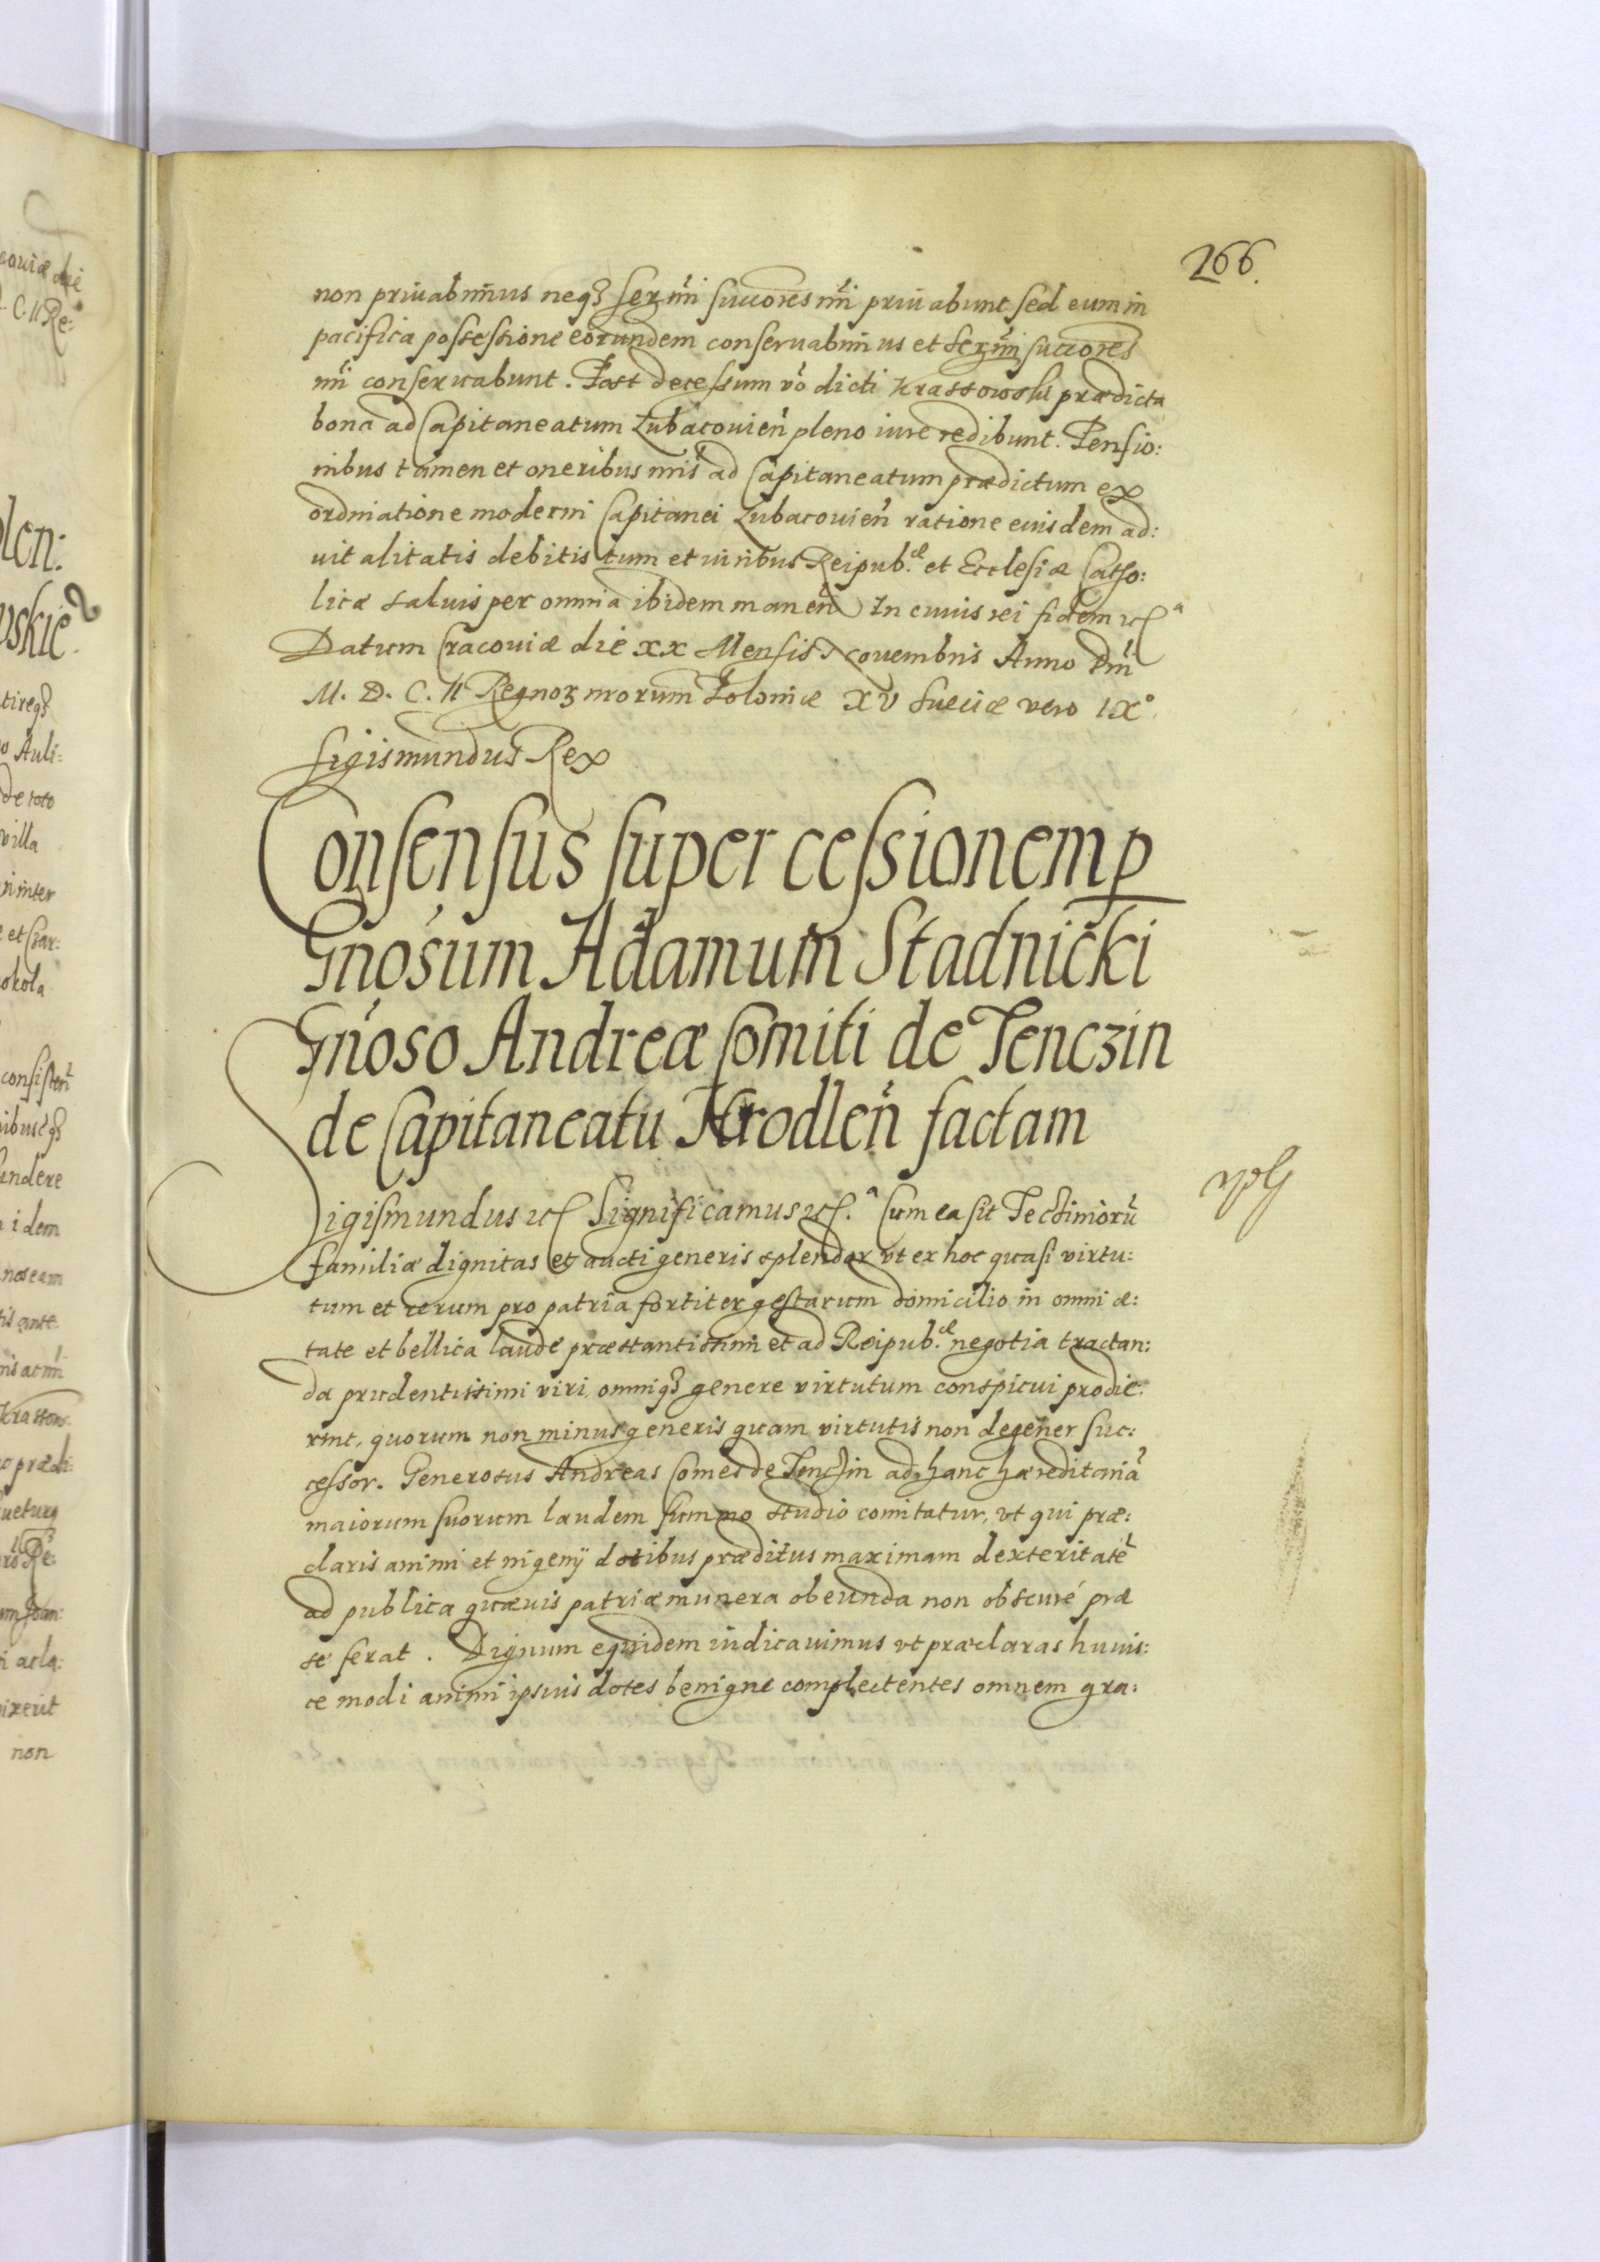 266.
non priuabimus neqȝ serm̃i succores nr̃i priuabunt sed eum in
pacifica possessione eorundem conseruabimus et serm̃i succores
nr̃i conseruabunt. Post decessum vo dicti Krassowski prædicta
bona ad Capitaneatum Lubacouien̄ pleno iure redibunt. Pensio:
nibus tamen et oneribus nr̃is ad Capitaneatum prædictum ex
ordinatione moderni Capitanei Lubacouien̄ ratione eiusdem ad:
uitalitatis debitis tum et iuribus Reipub.æ et Ecclesiæ Catho:
licæ saluis per omnia ibidem manen̄ In cuius rei fidem
Datum Cracouiæ die XX Mensis Nouembris Anno Dni
M. D. C. II Regnoꝝ nrorum Poloniæ XV Sueciæ vero IX°.
Sigismundus Rex
Consensus super cessionem ꝑ
Gnosum Adamum Stadnicki
Gnoso Andreæ Comiti de Tenczin
de Capitaneatu Hrodlen̄ factam
Sigismundus Significamus Cum ea sit Tectiniorū
familiæ dignitas et aucti generis splendor vt ex hoc quasi virtu:
tum et rerum pro patria fortiter gestarum domicilio in omni æ:
tate et bellica laude præstantissimi et ad Reipub.æ negotia tractan:
da prudentissimi viri, omniqȝ genere virtutum conspicui prodie:
rint, quorum non minus generis quam virtutis non degener suc:
cessor. Generosus Andreas Comes de Tenczin ad hanc hæreditariā
maiorum suorum laudem summo studio comitatur, vt qui præ:
claris animi et ingenij dotibus præditus maximam dexteritatē
ad publica quæuis patriæ munera obeunda non obscuré præ
se ferat. Dignum equidem iudicauimus vt præclaras huius:
ce modi animi ipsius dotes benigne complectentes omnem gra: